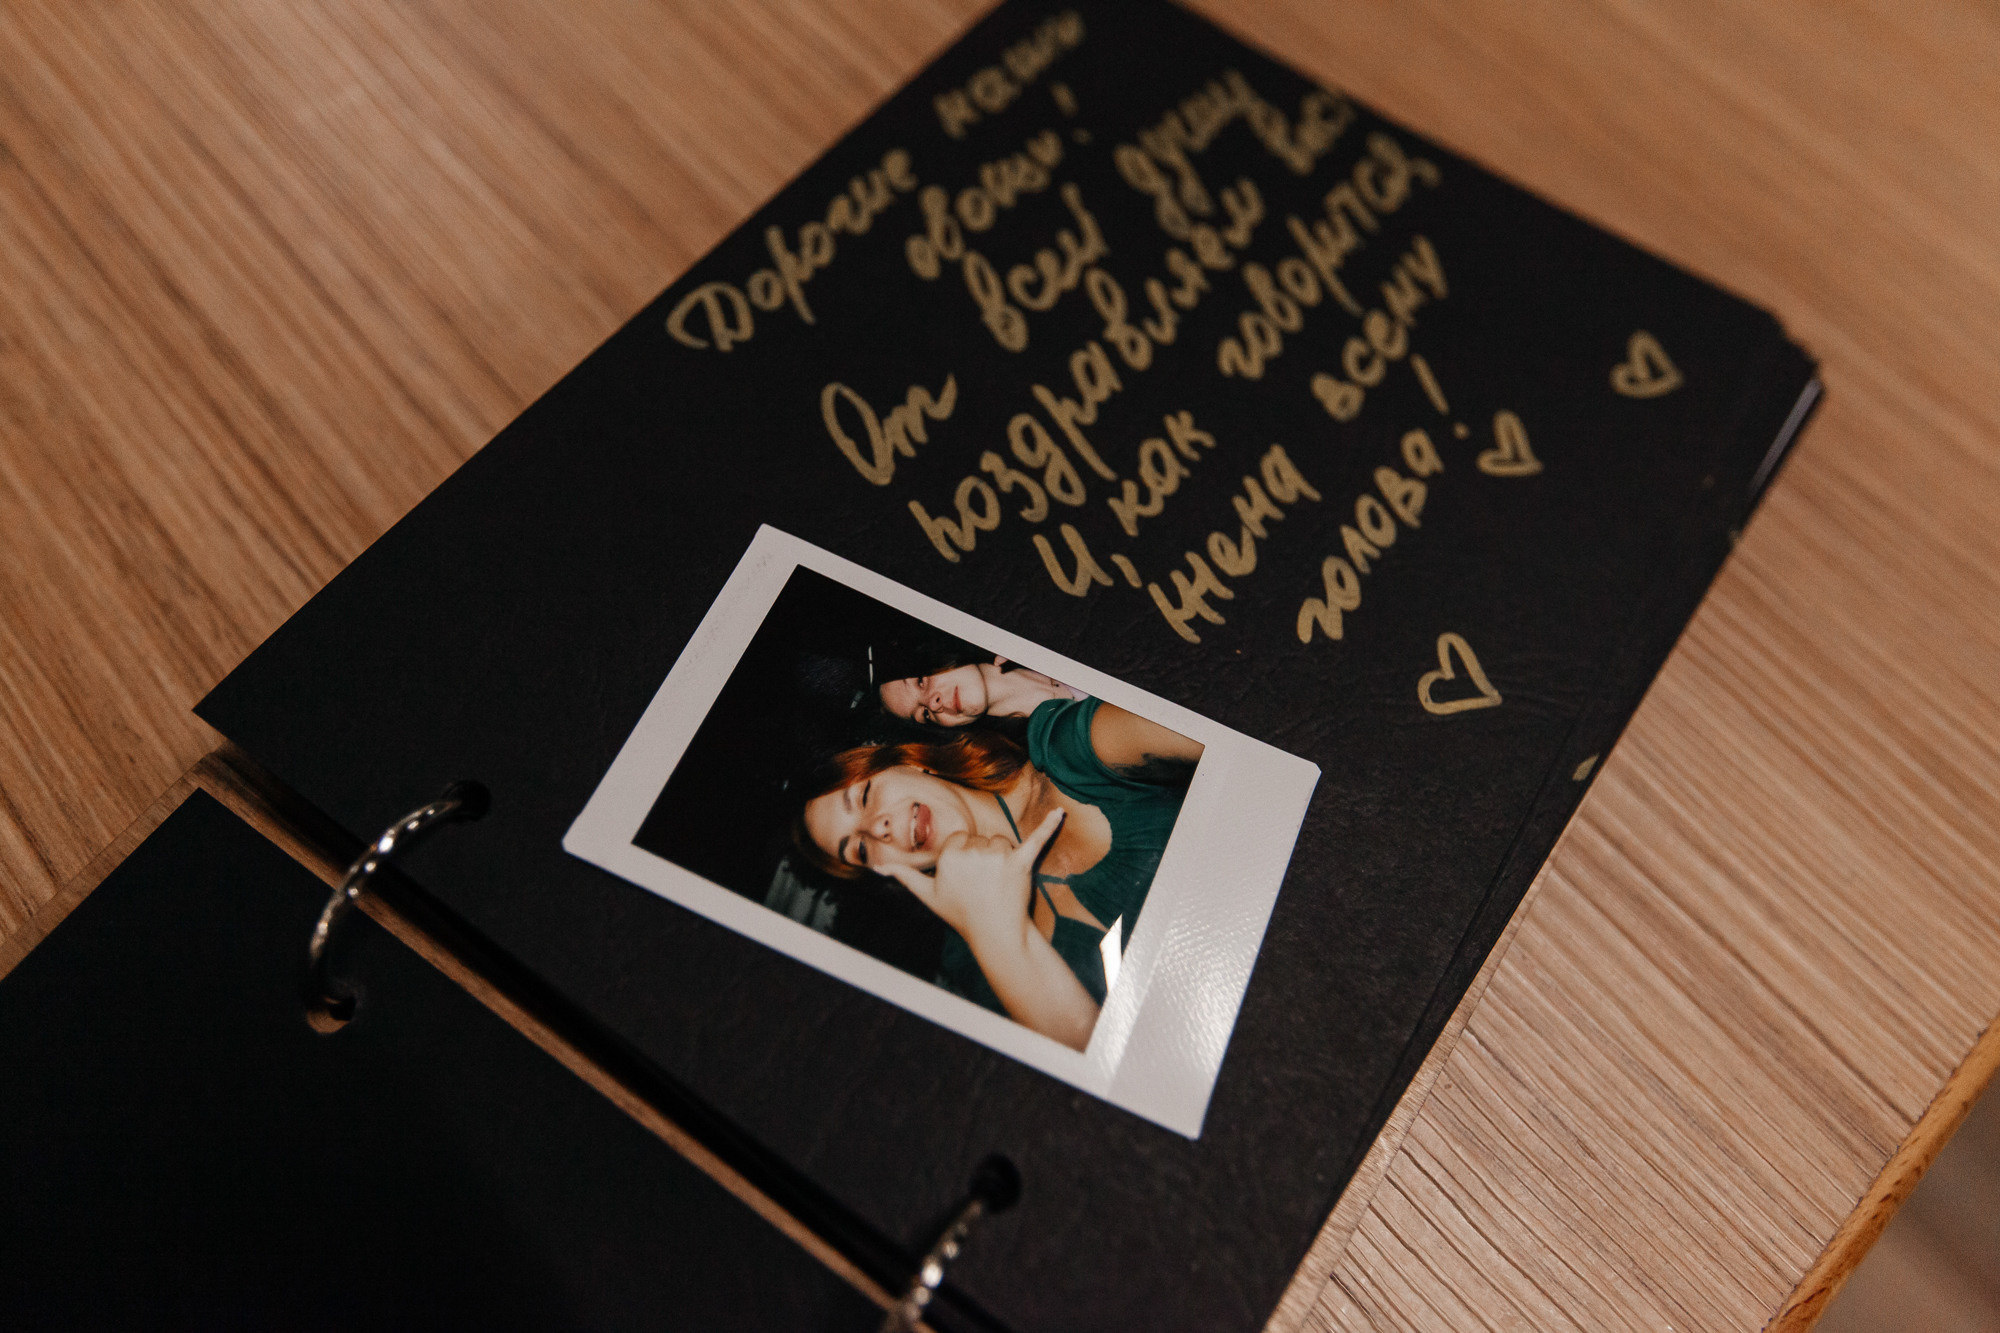 Дорогие наши
овощи!
От всей душы
поздравляем вас!
И, как говорится,
жена всему
голова!